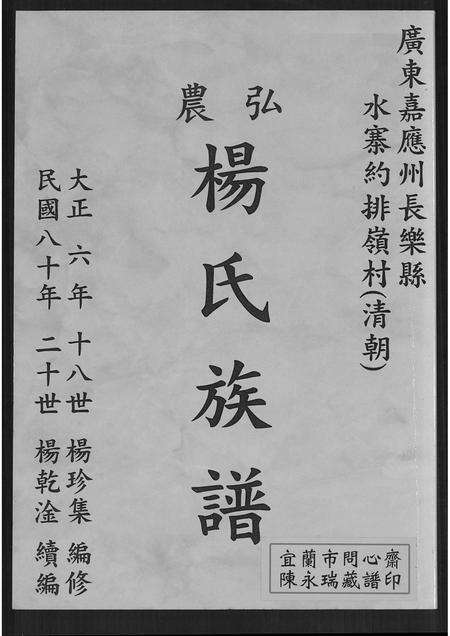 廣東嘉應州長樂縣
水寨約排嶺村(清朝)
弘農
楊氏族譜
大正六年 十八世 楊珍集 編修
民國八十年 二十世 楊乾淦 續編
宜蘭市問心齋
陳永瑞藏譜印